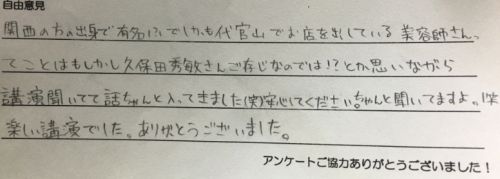 自由意見
関西の方の出身で有名人でしかも代官山でお店を出している美容師さん、
てことはもしかし久保田秀敏さんご存じなのでは!?とか思いながら
講演聞いてて話ちゃんと入ってきました(笑)安心してください。ちゃんと聞いてますよ。(笑
楽しい講演でした。ありがとうございました。
アンケートご協力ありがとうございました!